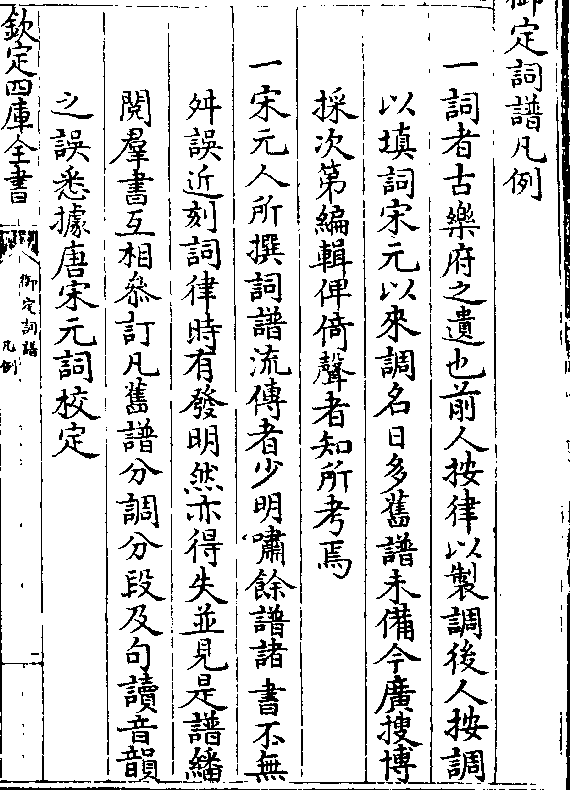 御定詞譜凡例
一詞者古樂府之遺也前人按律以製調後人按調
以填詞宋元以來調名日多舊譜未備今廣搜博
採次第編輯俾倚聲者知所考焉
一宋元人所撰詞譜流傳者少明嘯餘譜諸書不無
舛誤近刻詞律時有發明然亦得失並見是譜繙
閱羣書互相叅訂凡舊譜分調分段及句讀音韻
之誤悉據唐宋元詞校定
欽定四庫全書
御定詞譜
凡例